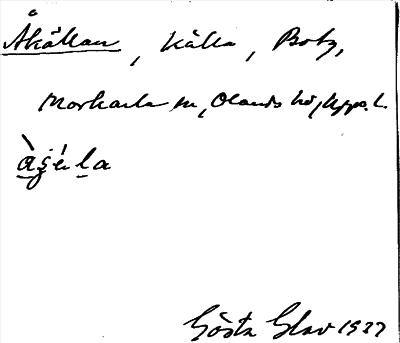 Åkällan, källa, Boby,
Morkarla sn, Olands hd, Upps. l.
Gösta Glav 1937